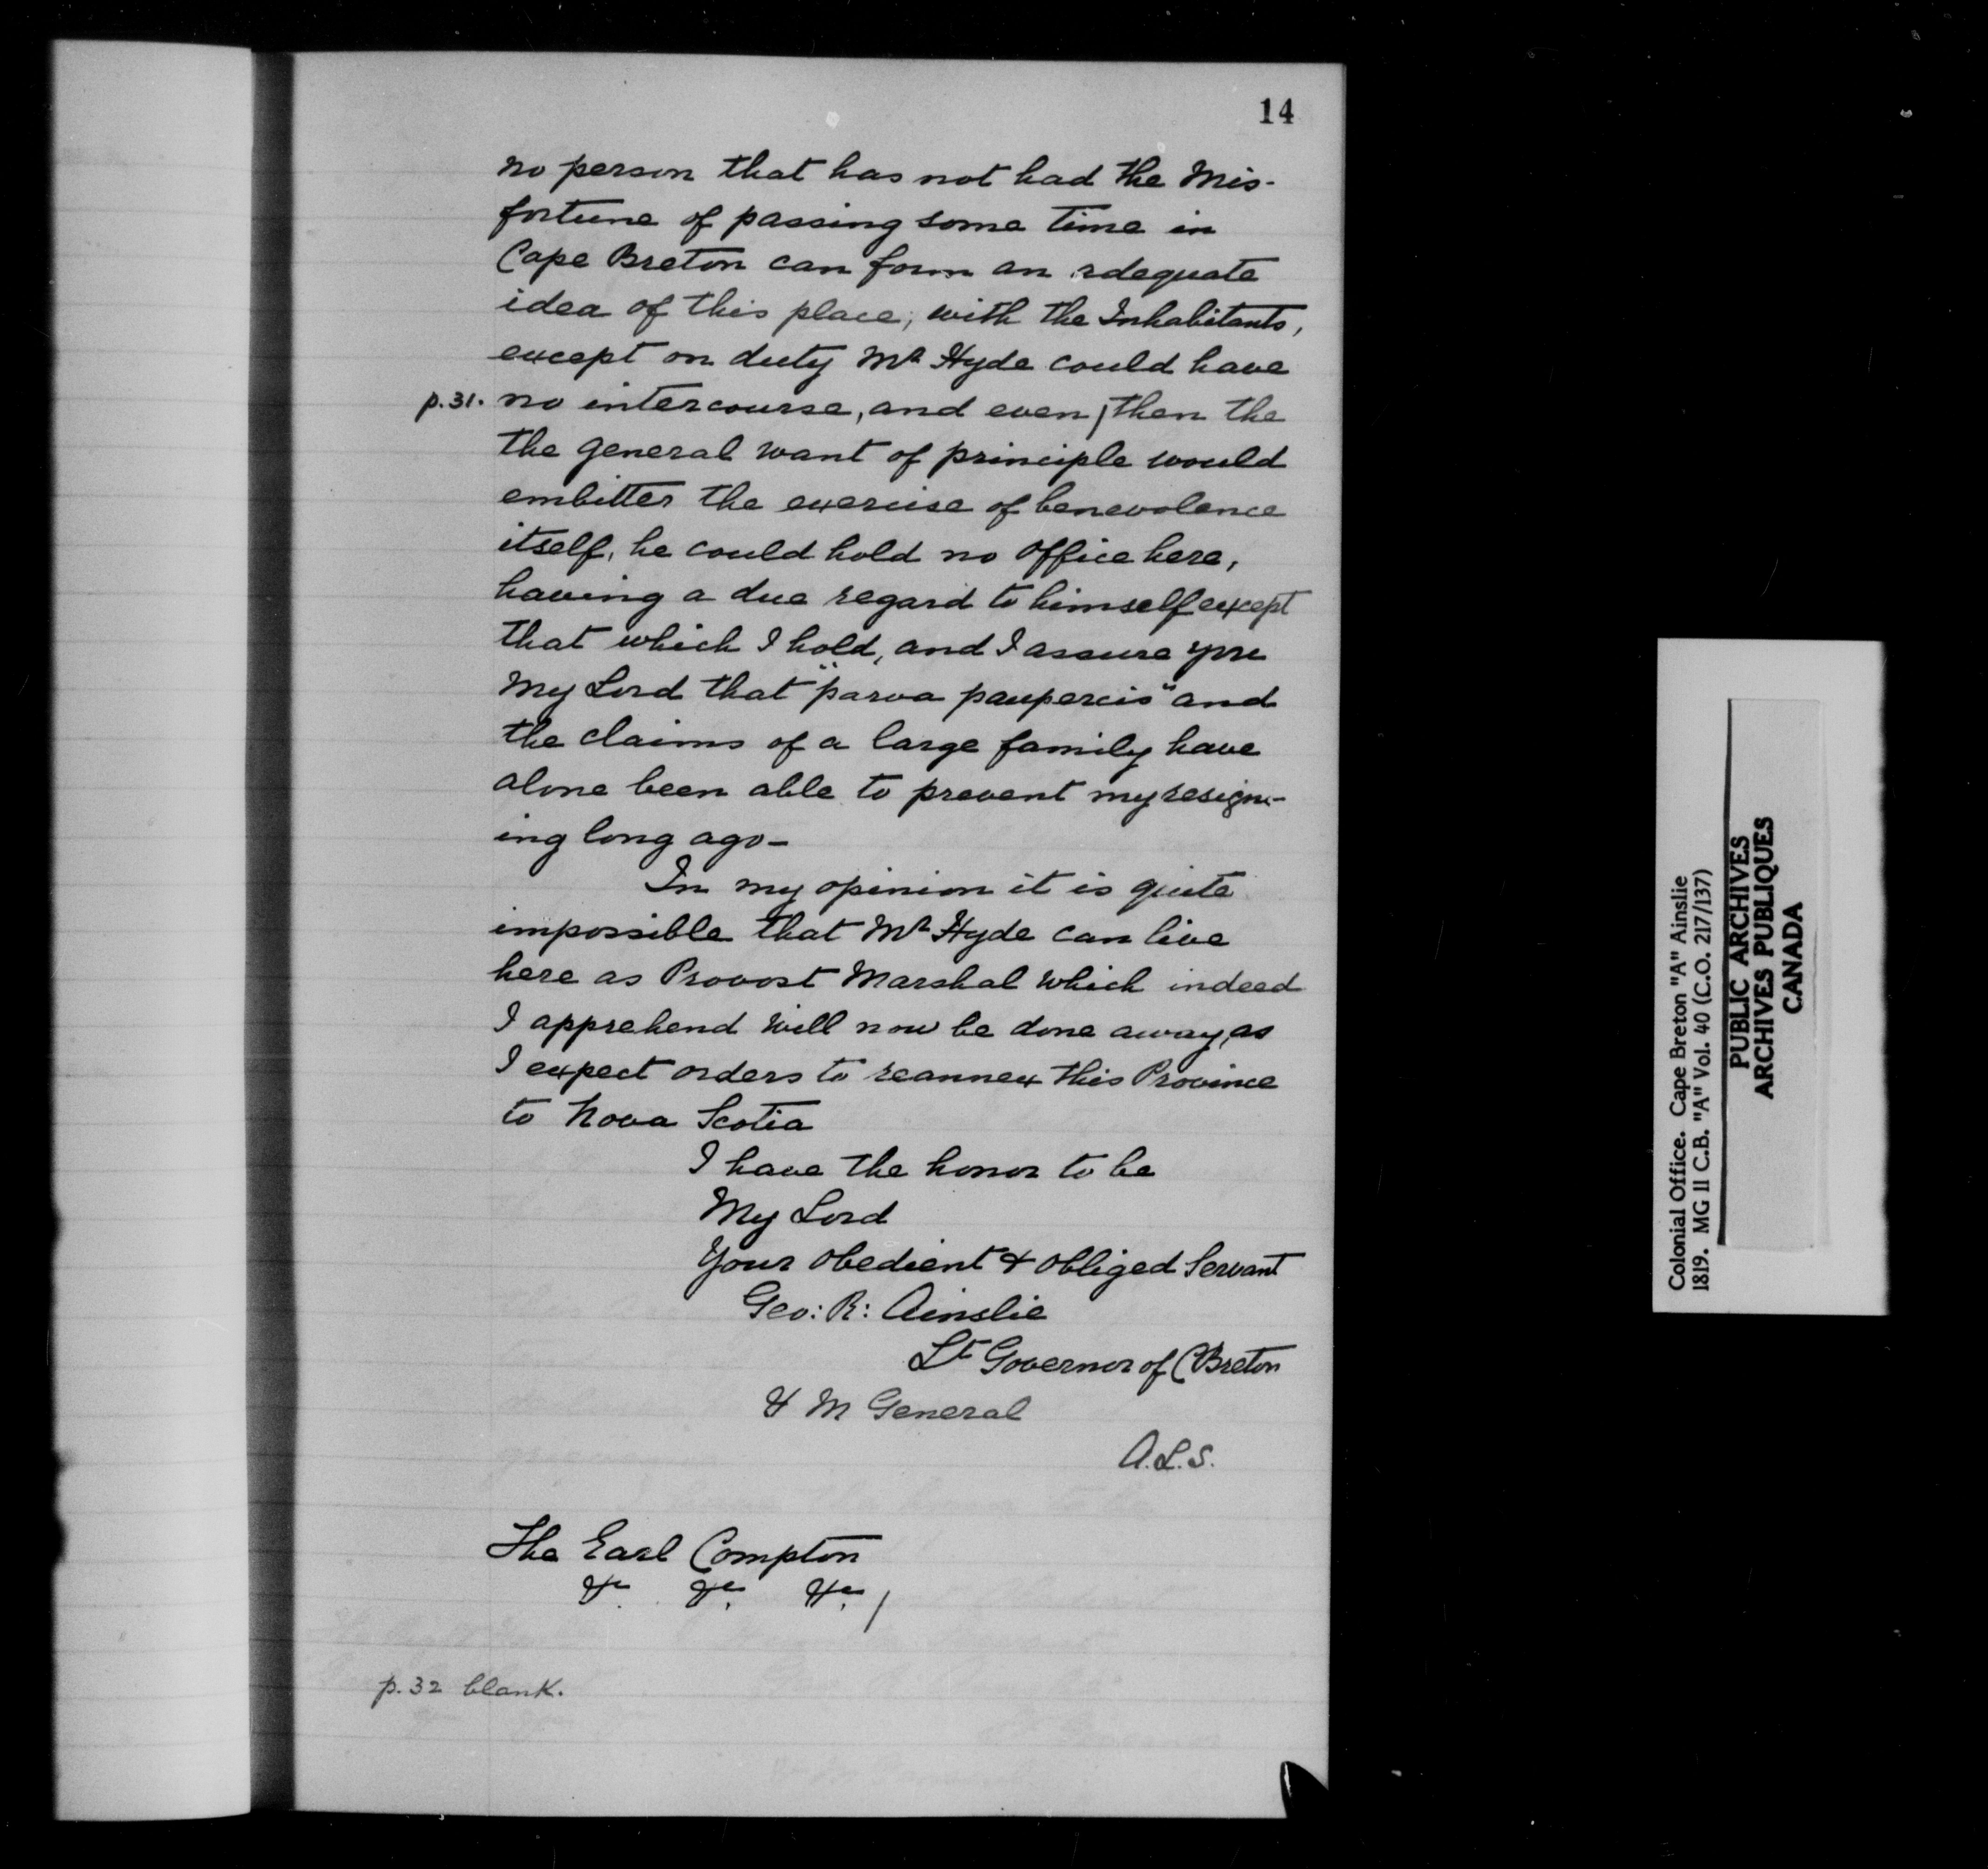 14
no person that has not had the Mis-
fortune of passing some time in
Cape Breton can form an adequate
idea of this place, with the Inhabitants,
except on duty Mr Hyde could have
p.31. no intercourse, and even / then the
the general want of principle would
embitter the exercise of benevolence
itself, he could hold no office here,
having a due regard to himself except
that which I hold, and I assure you
My Lord that "parva pauperis" and
the claims of a large family have
alone been able to prevent my resign-
ing long ago-
In my opinion it is quite
impossible that Mr Hyde can live
here as Provost Marshal which indeed
I apprehend will now be done away, as
I expect orders to reannex this Province
to Nova Scotia
I have the honor to be
My Lord
Your obedient & obliged Servant
Geo: R: Ainslie
Lt Governor of C Breton
& M General
A.L.S.
The Earl Compton
&c &c. &c. /
p.32 blank.
Colonial Office. Cape Breton "A" Ainslie
1819. MG 11 C.B. "A" Vol. 40 (C.O. 217/137)
PUBLIC ARCHIVES
ARCHIVES PUBLIQUES
CANADA